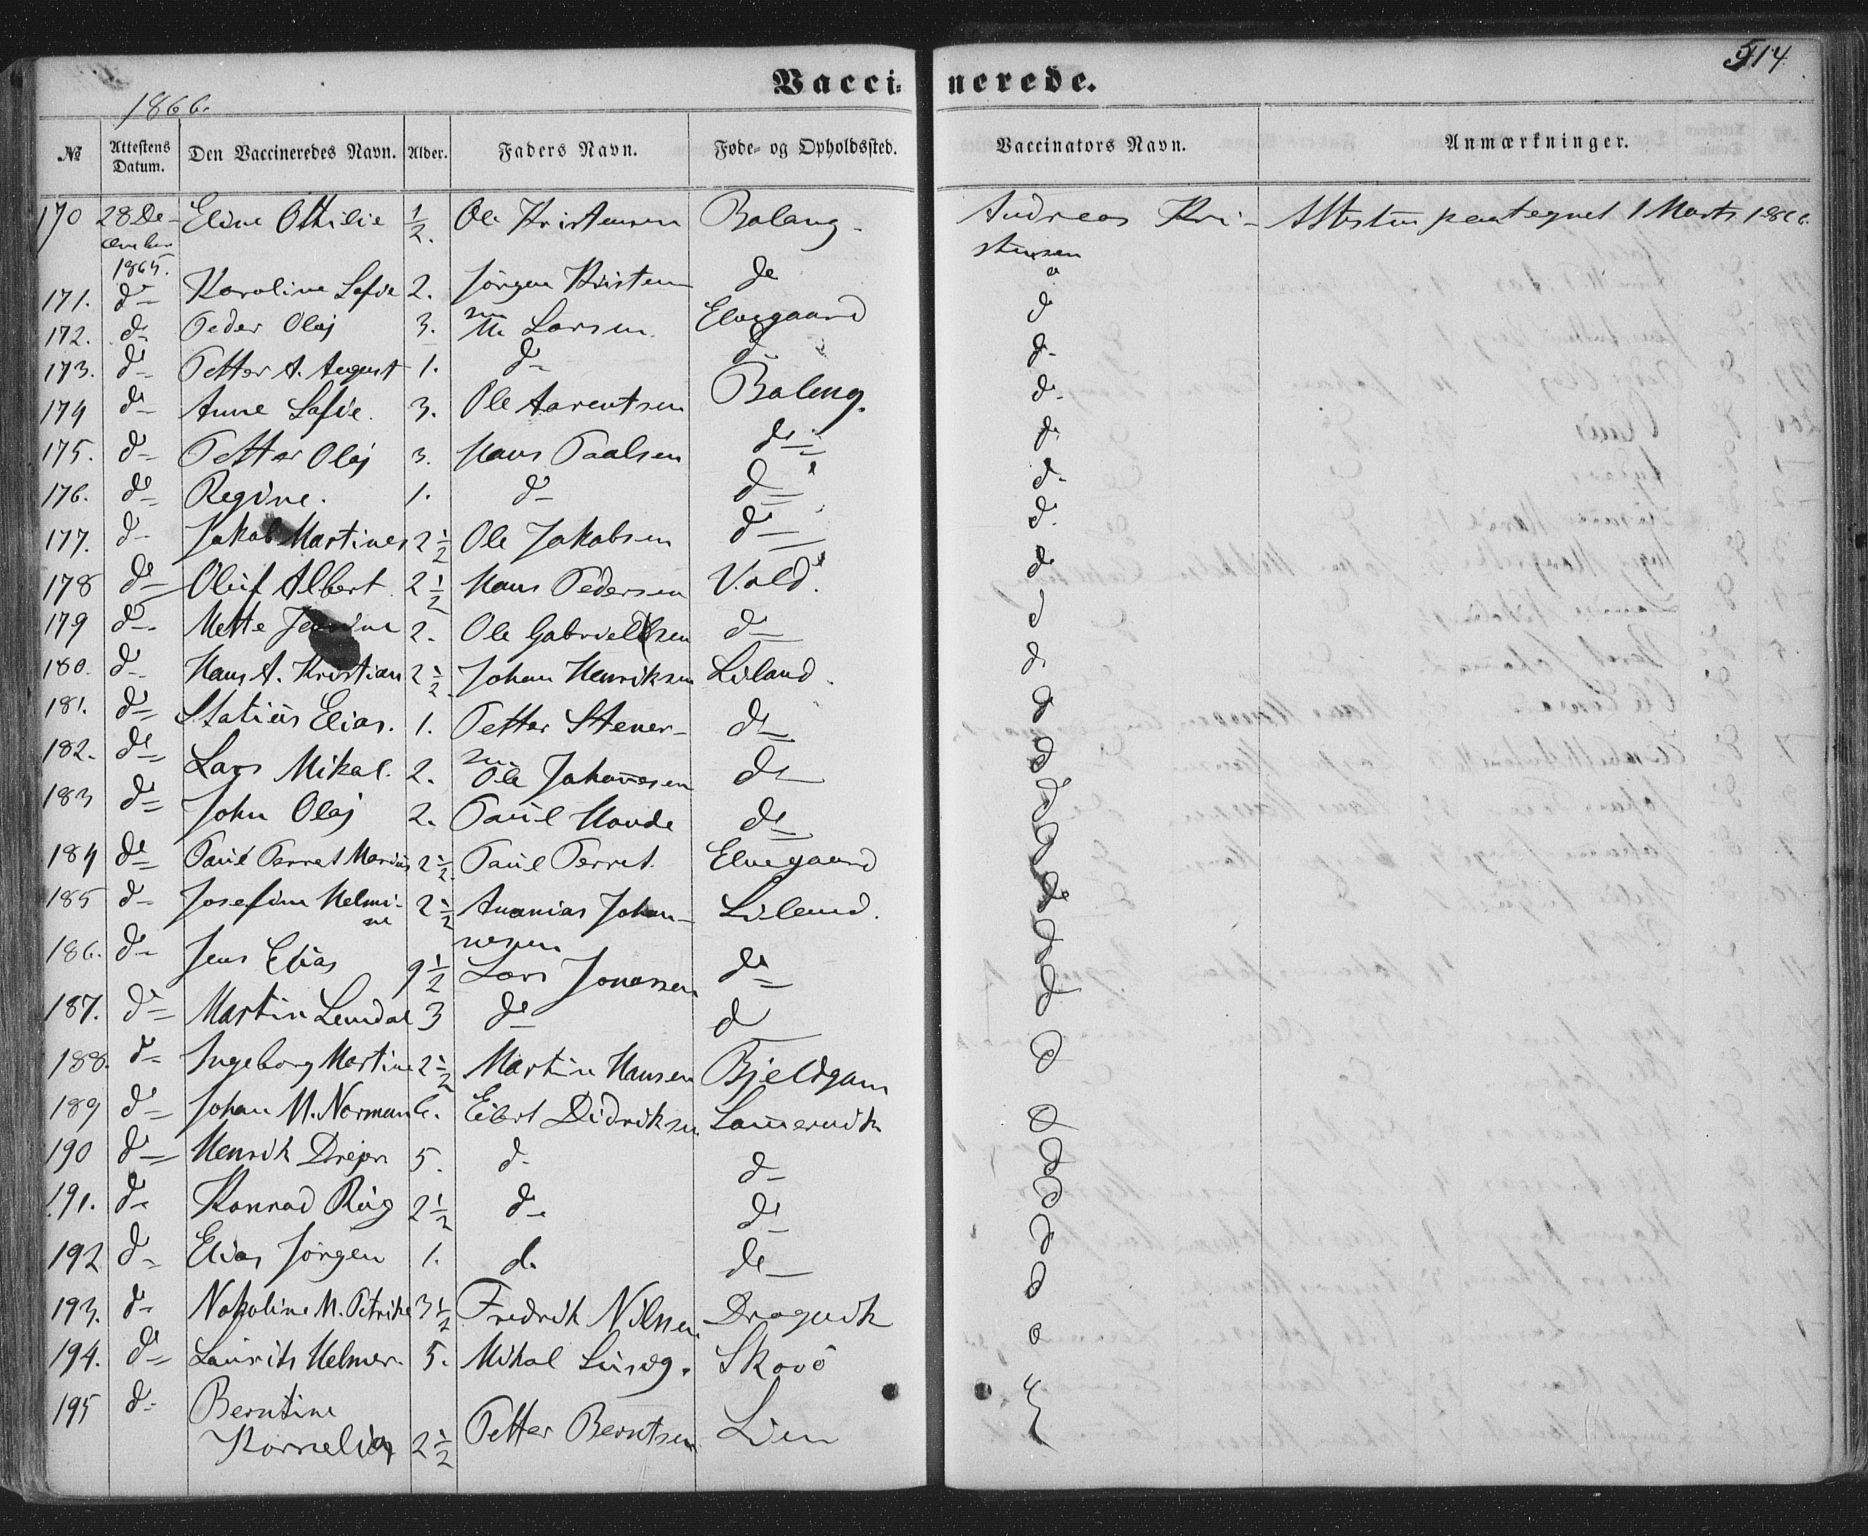 514
Vaccinerede.
1866.
№ Attestens Datum. Den Vaccineredes Navn. Alder. Faders Navn. Føde- og Opholdssted. Vaccinators Navn. Anmærkninger.
170 28 De- Eline Othilie ½. Ole Kristensen Balang. Andreas Kri- Attesten paategnet 1 Marts 1866.
cember stensen
1865.
171. do Karoline Sofie 2. Jørgen Kristen- do do
172. do Peder Olaj 3. sen M. Larsen. Elvegaard do
173. do Petter A. August 1. do do do
174 do Anne Sofie. 3. Ole Aarentsen Balang. do
175. do Petter Olaj 3. Hans Paalsen do do
176. do Regine. 1. do do do
177. do Jakob Martines 2½ Ole Jakobsen do do
178 do Oluf Albert 2½ Hans Pedersen Vold. do
179 do Mette 2. Ole Gabrielsen do do
180. do Hans A. Kristian 2½ Johan Henriksen Liland. do
181. do Statius Elias. 1. Petter Stener- do do
182. do Lars Mikal. 2. sen Ole Johannesen do do
183 do John Olaj 2. Paul Haude do do
184 do Paul Perret Marius 2½ Paul Perret. Elvegaard do
185 do Josefine Helmi- 2½ Ananias Johan- Liland. do
ne nesen
186. do Jens Elias 9½ Lars Jonassen do do
187. do Martin Lendal 3 do do do
188. do Ingeborg Martine 2½ Martin Hansen Bjeldgam do
189 do Johan M. Norman 6. Eibert Didriksen do
190 do Henrik Drejer 5. do do do
191. do Konrad Riig 2½ do do do
192 do Elias Jørgen 1. do do do
193. do M. Petrike 3½ Fredrik Nilsen Dragvik do
194. do Laurits Helmer. 5. Mikal Ludvg. Skovø do
195 do Berntine
Kornelia 2½ Petter Berntsen Lien